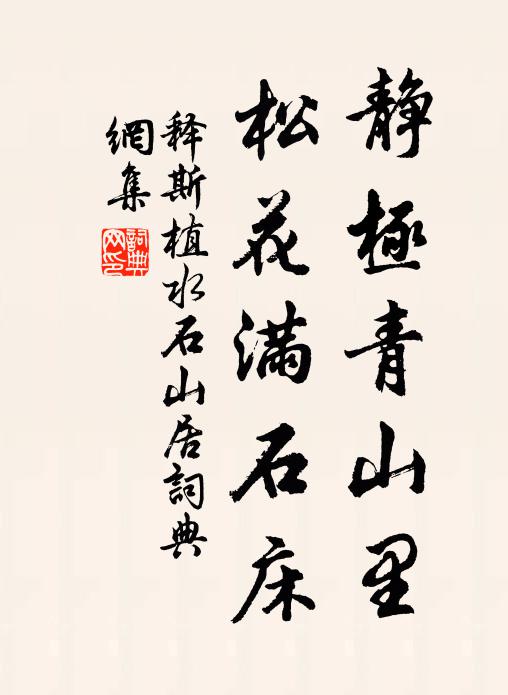 静極青山里
松花滿石床
释斯植水石山居詞典
網集
詞典
网印